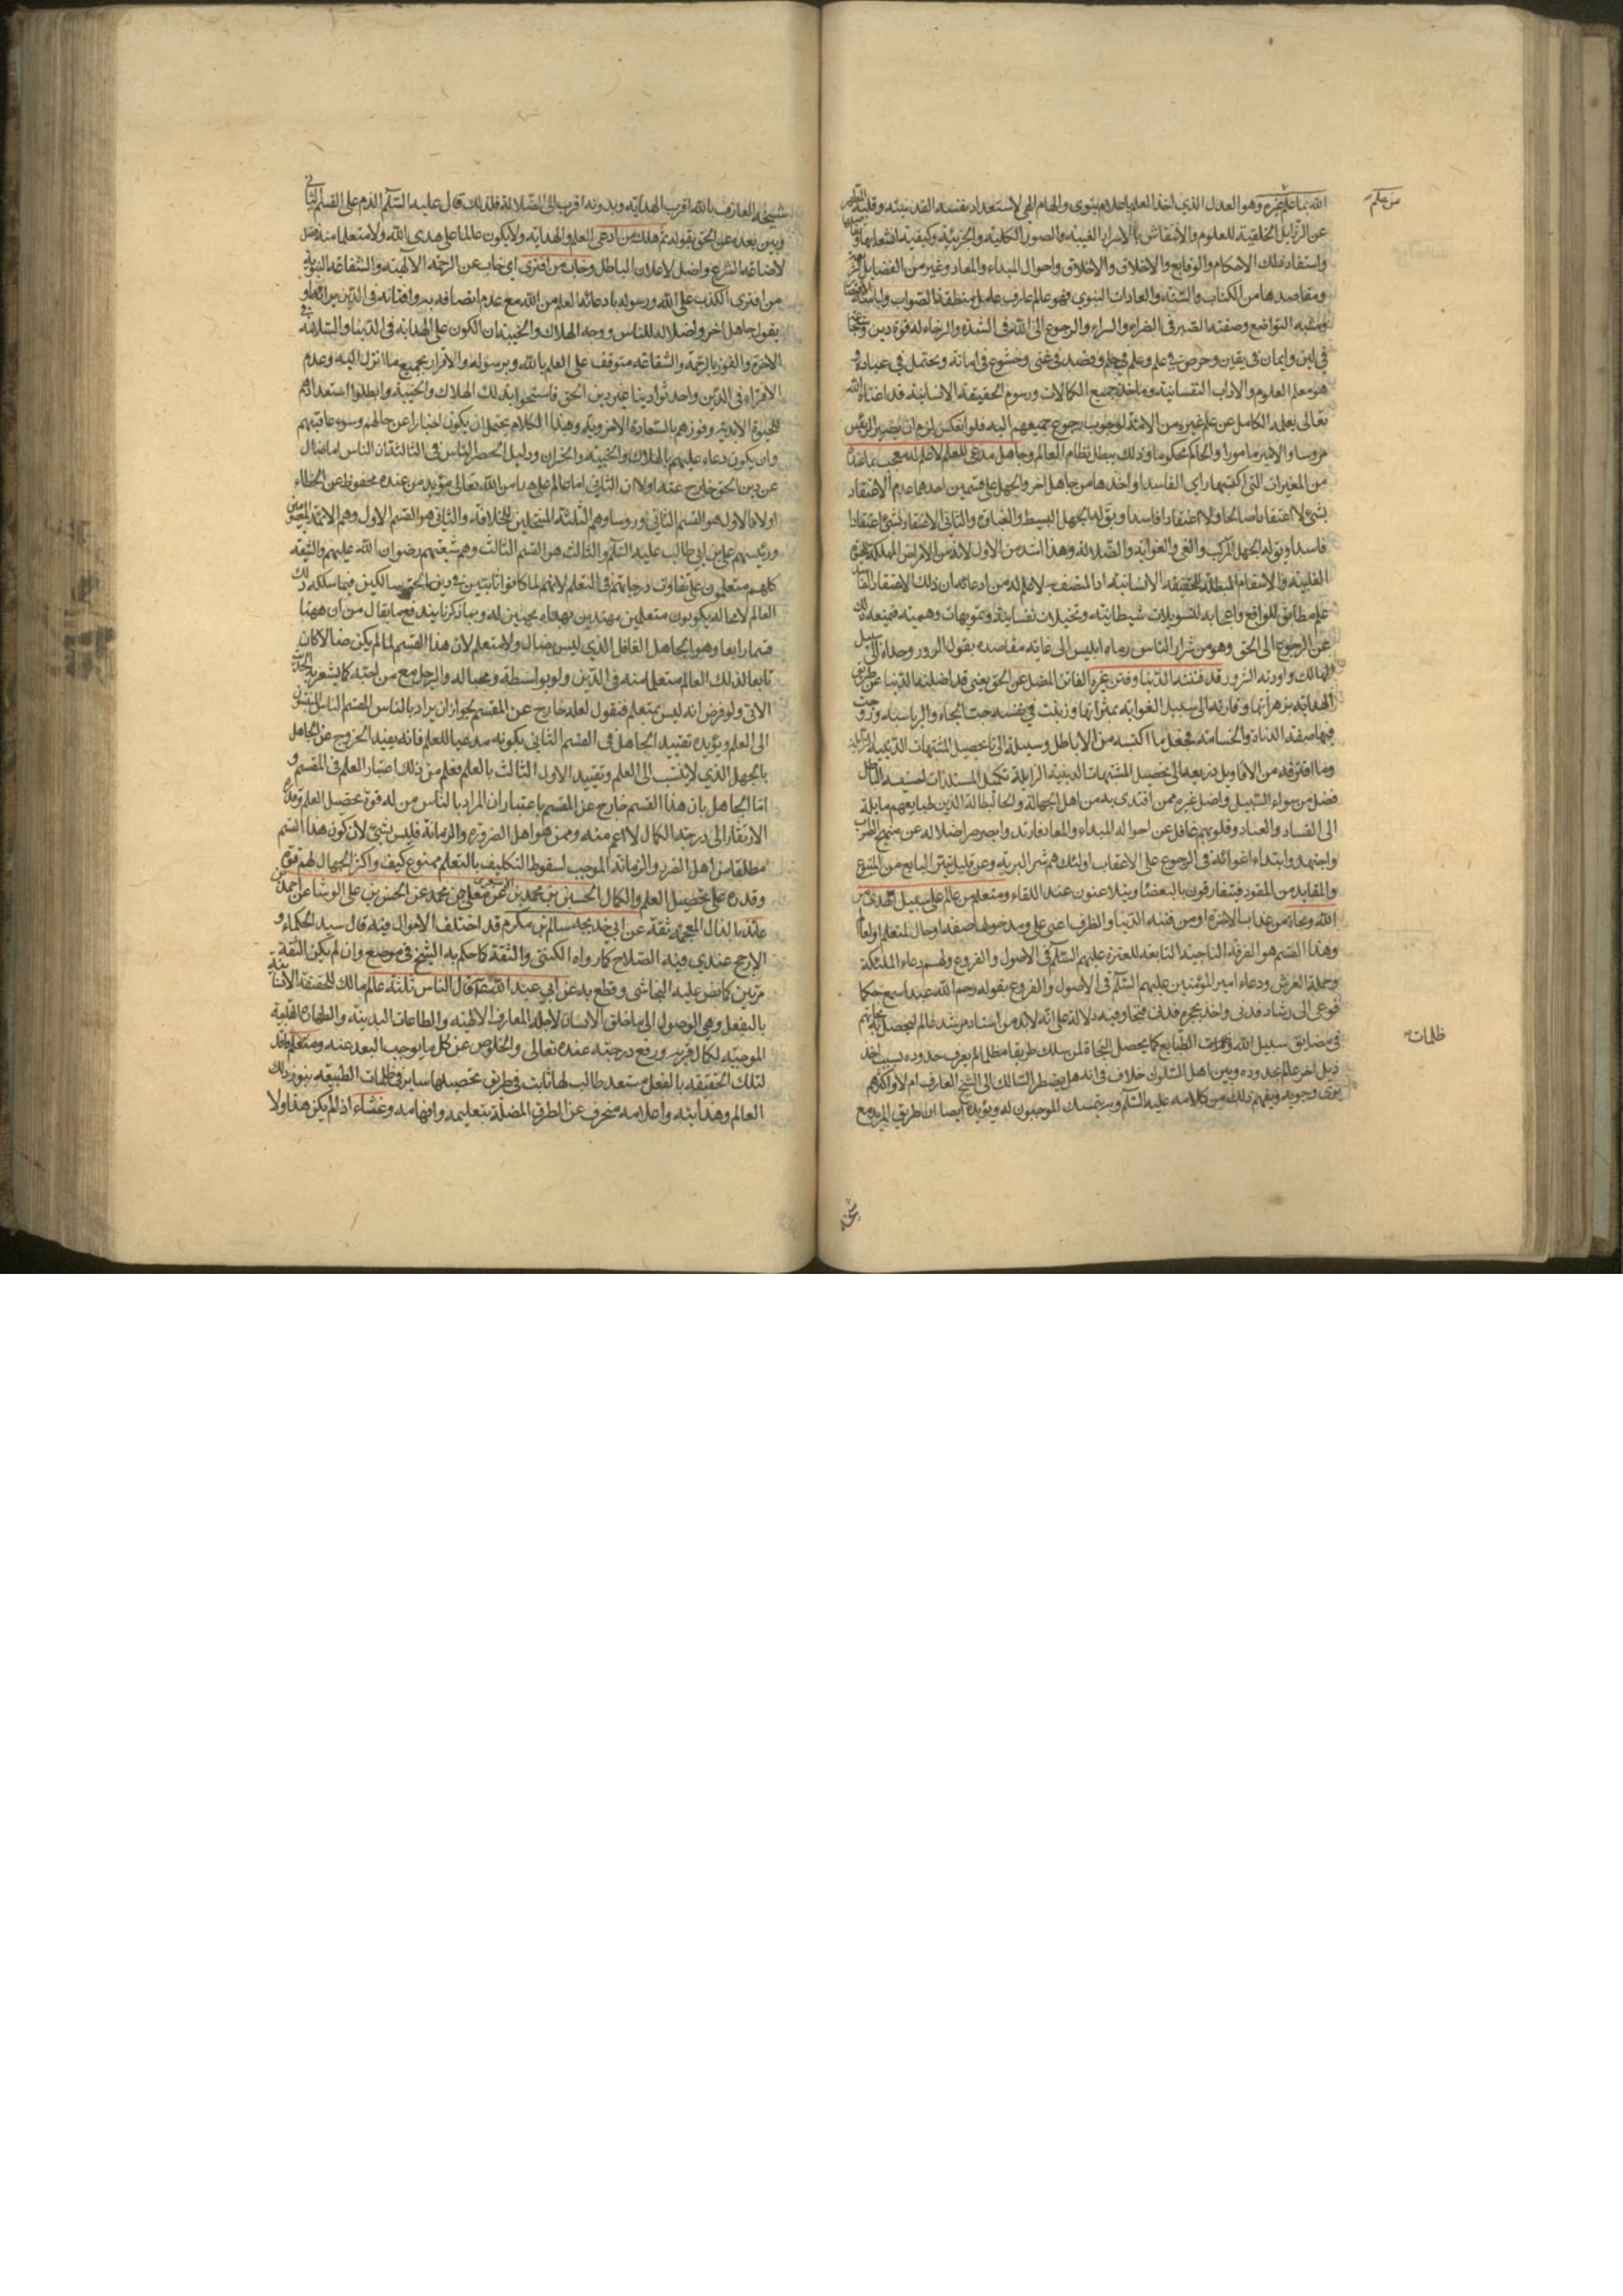 الله بما علم غيره وهو العدل الذي اخذ العلم باعلام نبوي والهام الهي لاستعداد نفسه القدسية وقلبه
من علم
عن الرذايل الخلقية للعلوم والانتقاش بالاسرار الغيبية والصور الكلية والجزئية وكيفية انشعابها
واستفاد تلك الاحكام والوقايع والاخلاق والاخلاق واحوال المبداء والمعاد وغير من الفضايل
ومقاصدها من الكتاب والسنة والعادات النبوي فهو عالم عارف عامل منطقه الصواب ولباسه
ومشيه التواضع وصفته الصبر في الضراء والسراء والرجوع الى الله في الشدة والرخاء له قوة في دين
في لين وايمان في يقين وحرص في علم وعلم في حلم وقصد في غنى وخشوع في امانة وتحمل في عبادة
هو معلم العلوم والاداب النفسانية وماخذ جميع الكمالات ورسوم الحقيقة الانسانية قد اغناه الله
تعالى بعلمه الكامل عن علم غيره من الامة لوجوب رجوع جميعهم اليه فلو انعكس لزم ان يصير الرئيس
مرؤسا والامير مامورا والحاكم محكوما وذلك يبطل نظام العالم وجاهل مدعي للعلم لا علم له معجب بما عنده
من المغيرات التي اكتسبها راى الفاسد او اخذها من جاهل اخر والجهل على قسمين احدهما عدم الاعتقاد
بشيء لا اعتقادا صالحا ولا اعتقادا فاسدا ويق له الجهل البسيط والغباوة والثاني الاعتقاد بشيء اعتقادا
فاسدا ويق له الجهل المركب والغي والغواية والضلالة وهذا اشد من الاول لانه من الامراض المهلكة
القلبية والاسقام المبطلة للحقيقة الانسانية اذ المتصف به لا علم له من ادعائه ان ذلك الاعتقاد
علم مطابق للواقع واعجابه لتسويلات شيطانية وتخيلات نفسانية وتمويهات وهمية فيمنعه
عن الرجوع الى الحق وهو من شرار الناس رماه ابليس الى غاية مقاصده بقول الزور وحداه الى
المهالك واودية الشرور قد فتنته الدنيا وفتن غيره الفاتن المضل عن الحق يعني قد اضلته الدنيا عن
الهداية بزهراتها وقادته الى سبيل الغواية بثمراتها وزينت في نفسه حب الجاه والرياسة
فيها صفة الدناءة والخساسة فجعل ما اكتسبه من الاباطيل وسيلة الى تحصيل المشتهيات
وما اقترفه من الاقاويل ذريعة الى تحصيل المشتهيات الدنية الزايلة
فضل من سواء السبيل واضل غيره ممن اقتدى به من اهل الجهالة الذين طبايعهم مايلة
الى الفساد والعناد وقلوبهم غافل عن احوال المبداء والمعاد
واجتهد وابتداء اغوائه في الرجوع على الاعقاب اولئك هم شر البرية وعن قليل يتبرء التابع من المتبوع
والمقايد من المقود فيتفارقون بالبغضا ويتلاعنون عند اللقاء ومتعلم من عالم على سبيل هدى من
الله ونجاة من عذاب الاخرة او من فتنة الدنيا والظرف اعني على ومدخولها صفة او حال لمتعلم او لعالم
وهذا القسم هو الفرقة الناجية التابعة للعترة عليهم السلم في الاصول والفروع ولهم دعاء الملئكة
وحملة العرش ودعاء امير المؤمنين عليهم السلم في الاصول والفروع بقوله رحم الله عبدا سمع حكما
فوعى ودعي الى رشاد فدنى واخذ بحجزة هاد فنجا وفيه دلالة على انه لابد من استاد مرشد عالم ليحصل به
في مضايق سبيل الله الطبايع كما يحصل النجاة لمن سلك طريقا مظلما لم يعرف حدوده بسبب اخذ
ظلمات
ذيل اخر عالم بحدوده وبين اهل السلوك خلاف في انه هل يضطر السالك الى الشيخ العارف ام لا واكثرهم
يرى وجوبه ويفهم ذلك من كلامه عليه السلم وبه يتمسك الموجبون له ويؤيده ايضا ان طريق المريد مع
شيخه
شيخه العارف بالله اقرب الهداية وبدونه اقرب الى الضلالة فلذلك قال عليه السلم الذم على القسم الثاني
وبين بعده عن الحق بقوله ثم هلك من ادعى للعلم والهداية ولا يكون عالما على هدى الله ولا متعلما منه
لاضاعة الشرع واضل لاعلان الباطل وخاب من افترى اي خاب عن الرحمة الالهية والشفاعة النبوية
من افترى الكذب على الله ورسوله بادعائه العلم من الله مع عدم اتصافه به وافتائه في الدين برائه او
بقول جاهل اخر واضلاله للناس ووجه الهلاك والخيبة ان الكون على الهداية في الدنيا والسلامة في
الاخرة والفوز بالرحمة والشفاعة متوقف على العلم بالله وبرسوله والاقرار بجميع ما انزل اليه وعدم
الافتراء في الدين واحدثوا دينا غير دين الحق فاستحقوا بذلك الهلاك والخيبة وابطلوا استعدادهم
للحيوة الابدية وفوزهم بالسعادة الاخروية وهذا الكلام يحتمل ان يكون اخبارا عن حالهم وسوء عاقبتهم
وان يكون دعاء عليهم بالهلاك والخيبة والخسران ودليل الحصر للناس في الثالثة ان الناس اما ضال
عن دين الحق خارج عنه اولا ان الثاني اما عالم على هدا من الله تعالى مؤيد من عنده محفوظ عن الخطاء
اولا فالاول هو القسم الثاني وروسا وهم الثلثة المنتحلين للخلافة والثاني هو القسم الاول وهم الائمة المعصومين
ورئيسهم علي بن ابي طالب عليه السلم والثالث هو القسم الثالث وهم شيعتهم رضوان الله عليهم والشيعة
كلهم متعلمون على تفاوت درجاتهم في التعلم لانهم لما كانوا ثابتين في دين الحق سالكين فيما سلكه ذلك
العالم لا محالة يكونون متعلمين مهتدين بهداه محبين له وبما ذكرنا يندفع ما يقال من ان ههنا
قسما رابعا وهو الجاهل الغافل الذي ليس بضال ولا متعلم لان هذا القسم لما لم يكن ضالا كان
تابعا لذلك العالم متعلما منه في الدين ولو بواسطة ومحبا له والرجل مع من احبه كما يشعر به الحديث
الاتي ولو فرض انه ليس بمتعلم فنقول لعله خارج عن المقسم بجواز ان يراد بالناس المقسم الناس المنتسبون
الى العلم ويؤيده تقييد الجاهل في القسم الثاني بكونه مدعيا للعلم فانه يفيد الخروج عن الجاهل
بالجهل الذي لا ينتسب الى العلم وتقييد الاول الثالث بالعلم فعلم من ذلك اعتبار العلم في المقسم و
اما الجاهل بان هذا القسم خارج عن المقسم باعتبار ان المراد بالناس من له قوة تحصيل العلم وقدرة
الارتقاء الى درجة الكمال لا اعم منه وممن هو اهل الضرورة والزمانة فليس بشيء لان كون هذا القسم
مطلقا من اهل الضرر والزمانة الموجب لسقوط التكليف بالتعلم ممنوع كيف واكثر الجهال لهم قوة
وقدرة على تحصيل العلم والكمال الحسين بن محمد عن معلى بن محمد عن الحسن بن علي الوشاء عن احمد بن
عائذ بالذال المعجمة ثقة عن ابي خديجة سالم بن مكرم قد اختلف الاحوال فيه قال سيد الحكماء و
الارجح عندي فيه الصلاح كما رواه الكشي والثقة كما حكم به الشيخ في موضع وان لم يكن الثقة
مرتين كما نص عليه النجاشي وقطع به عن ابي عبد الله ع قال الناس ثلثة عالم مالك للحقيقة الانسانية
بالفعل وهي الوصول الى ما خلق الانسان لاجله المعارف الالهية والطاعات البدنية والطهارة القلبية
الموجبة لكمال قربه ورفع درجته عنده تعالى والخلوص عن كل ما يوجب البعد عنه ومتعلم فاقد
لتلك الحقيقة بالفعل مستعد طالب لها ثابت في طريق تحصيلها ساير في ظلمات الطبيعة بنور ذلك
العالم وهدايته واعلامه منحرف عن الطرق المضلة بتعليمه وافهامه وغثاء اذ لم يكن هذا ولا